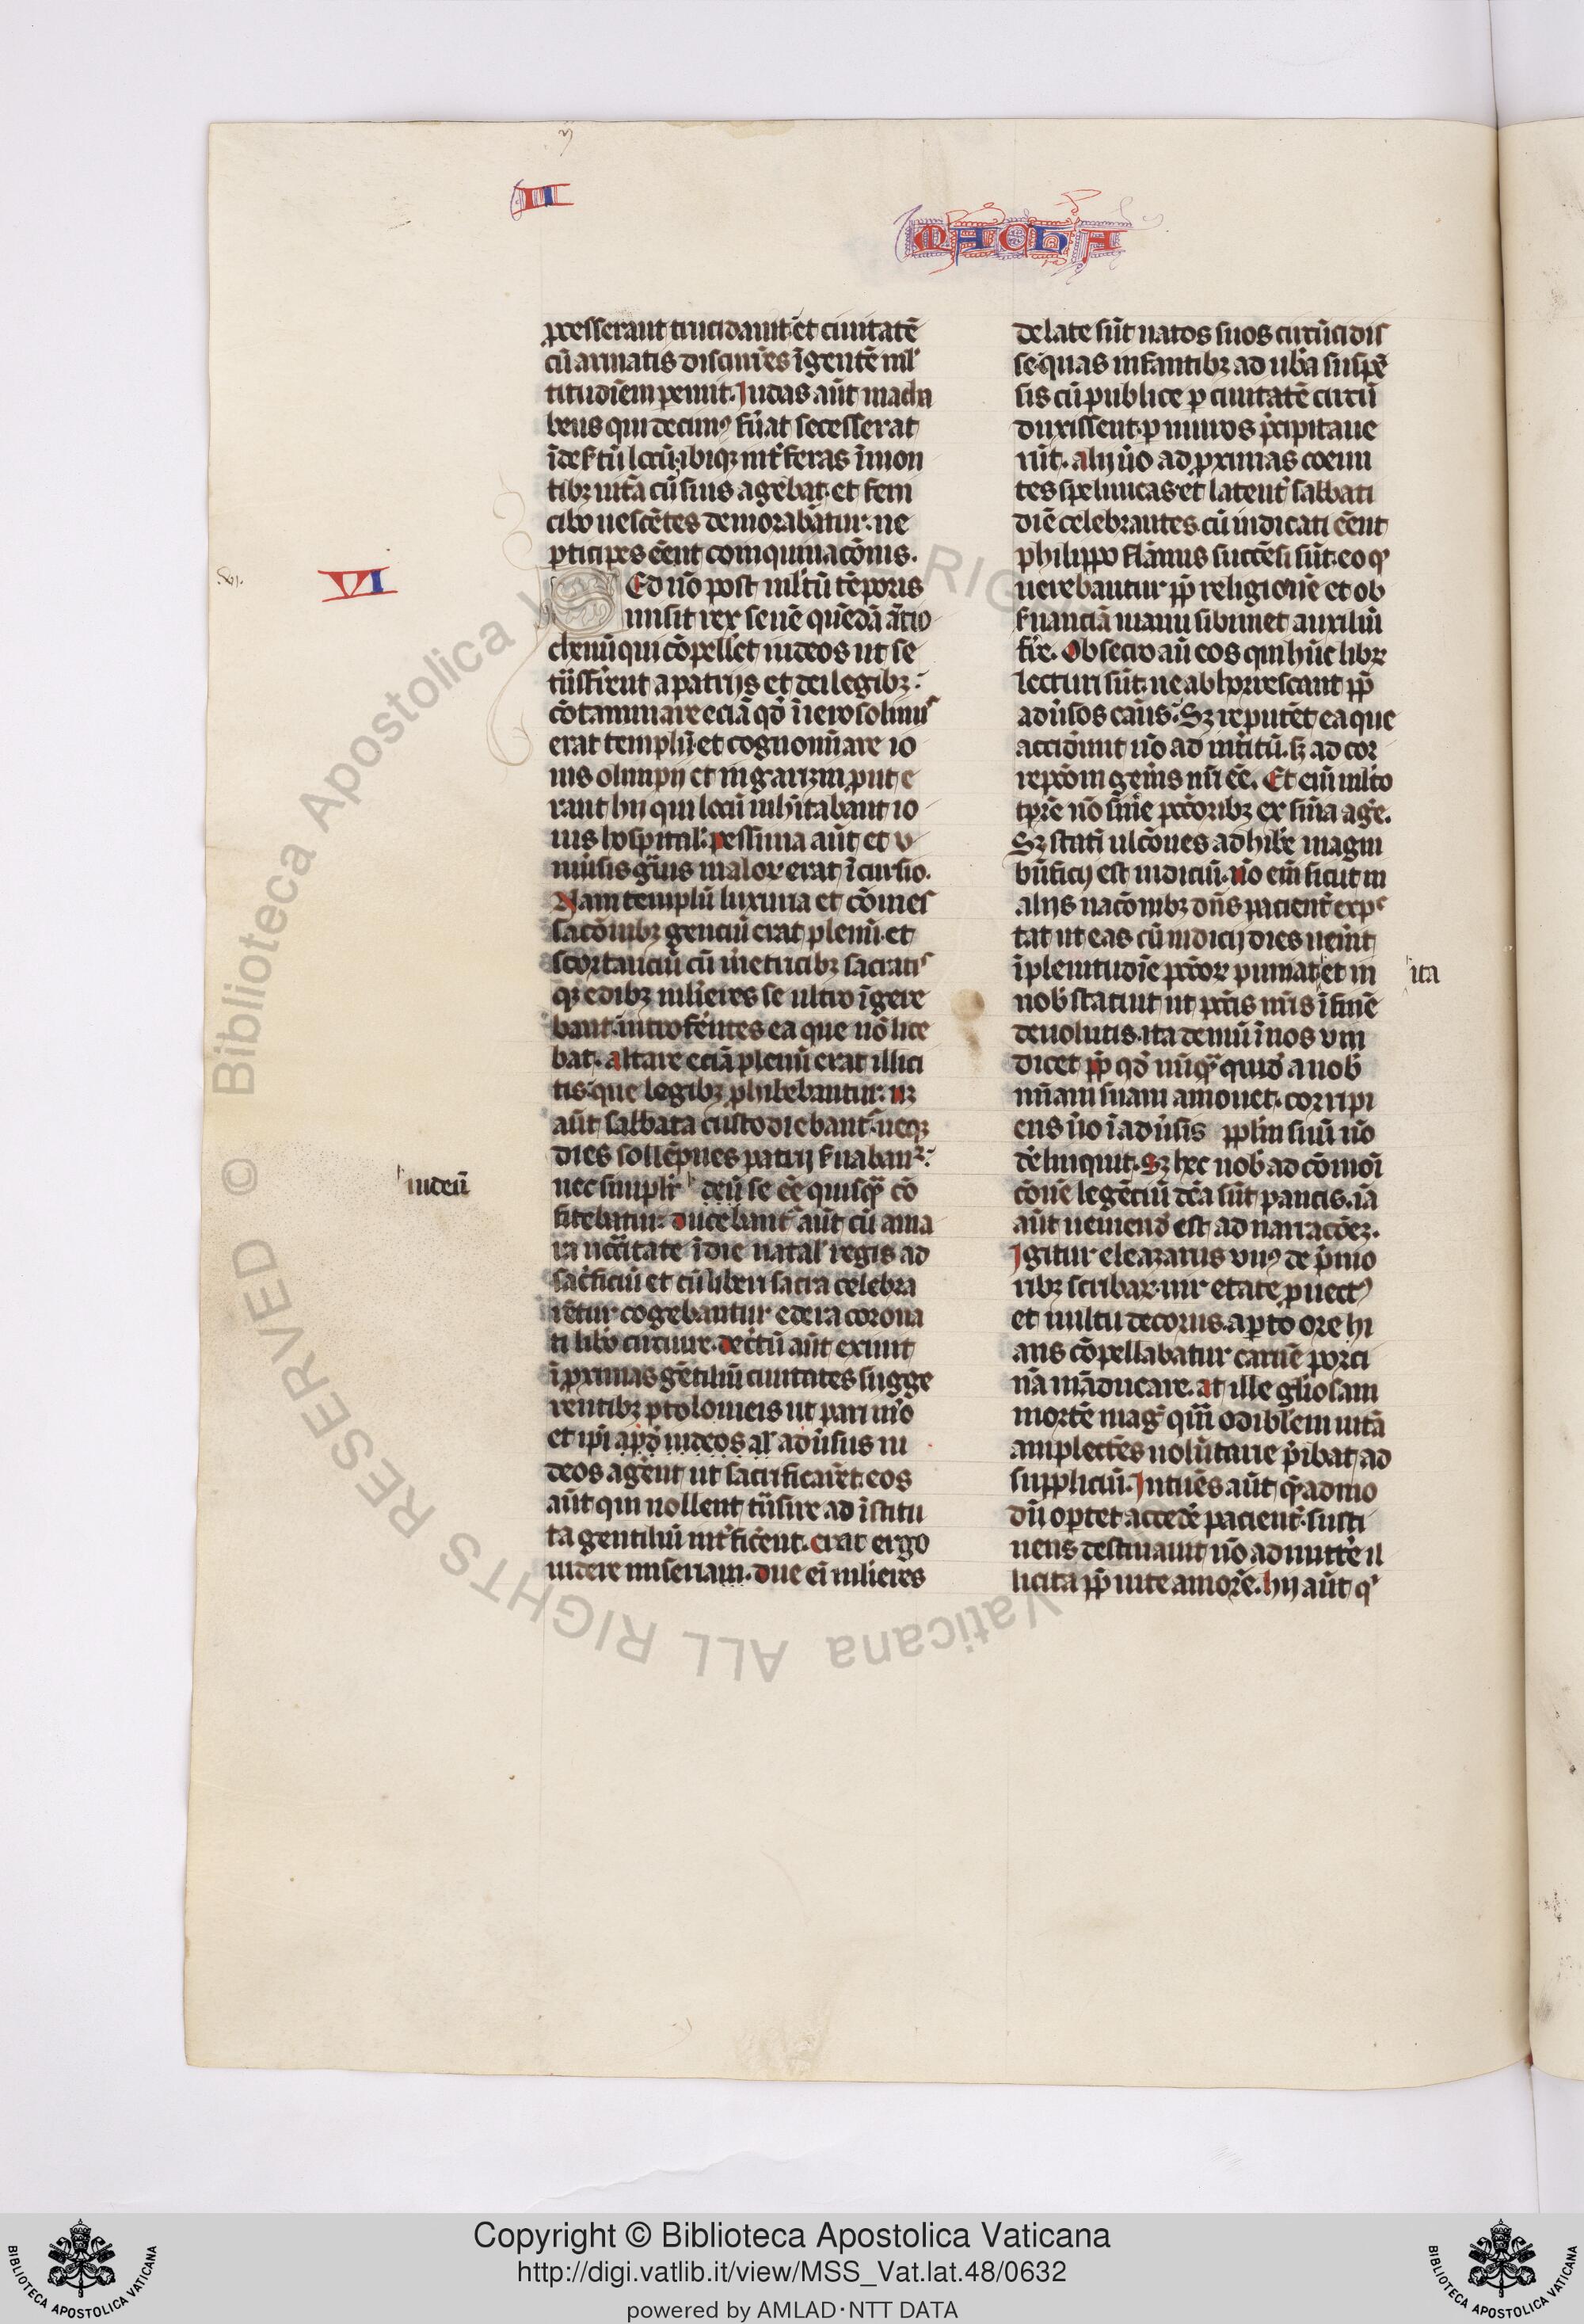 II
MACHA
ꝓcesserant trucidauit· et ciuitatē
cū armatis discurrēs īgentē ml̓
titudiēm pemit. Iudas aūt macha
beus qui decimꝰ fu̓at secesserat
ī de ẜtū locū· ibiqꝫ int̓ feras ī mon
tibꝫ uitā cū suis agebat· et feni
cibo uescētes demorabātur· ne
ꝑticipes eēnt coinquinacōnis.
.vj.
VI
Sed nō post ml̓tū tēporis
misit rex senē quēdā ātio
chenū qui cōpell̓et iudeos ut se
tn̄sfr̓ent a patrijs et dei legibꝫ·
cōtaminare eciā qd̓ ī ierosolimis
erat templū· et cognomīare io
uis olimpij et in garizim ꝓut e
rant hij qui locū inhītabant io
uis hospital̓. pessima aūt et v
niu̓sis g̓uis malor erat īcursio.
Nam templū luxuria et cōmes
sacōnibꝫ genciū erat plenū· et
scortanciū cū meretricibꝫ sacratis
qꝫ edibꝫ mlieres se ultro īgere
bant· introferētes ea que nō lice
bat· altare eciā plenū erat illici
tis· que legibꝫ ꝓhibebantur· nꝫ
aūt sabbata custodiebant̓· neqꝫ
dies sollēpnes patrij ẜuabant̓·
iudeū
nec simplr̓ deū se eē quisq̓ cō
fitebatur· ducebant̓ aūt cū ama
ra nccītate ī die natal̓ regis ad
sac̓ficiū· et cū liberi sacra celebra
rētur cogebantur edera corona
ti libo circuire. decretū aūt exiuit
ī ꝓximas gētiliū ciuitates sugge
rentibꝫ ptolomeis ut pari mō
et ipi apd̓ iudeos al̓ adu̓sus iu
deos agēent ut sacrificarēt· eos
aūt qui nollent tn̄sire ad īstitu
ta gentiliū int̓ficēnt. erat ergo
uidere miseriam. due ei̓ mlieres
delate sūt natos suos circūcidis
se· quas infantibꝫ ad ub̓a suspē
sis cū publice ꝑ ciuitatē circū
duxissent ꝑ muros p̓cipitaue
rūt. alij u̓o ad ꝓximas coeun
tes speluncas· et latent̓ sabbati
diē celebrantes cū indicati eēnt
philippo flāmis succēsi sūt· eo qꝫ
uerebantur ꝓp̓ religionē et ob
ẜuanciā manu sibimet auxiliū
fr̓e. Obsecro aū eos qui hūc libꝝ
lecturi sūt· ne abhorrescant ꝓp̓
adu̓sos casus· Sꝫ reputēt ea que
acciderunt nō ad int̓itū· sꝫ ad cor
repcōm gen̓is nr̓i eē. Et eiū mlto
tpr̓e nō sin̓e pccōribꝫ ex sn̄ia ag̓e.
Sꝫ statī ulcōnes adhibe̓ magni
bn̄ficij est iudiciū. Nō eī sicut in
alijs nacōnibꝫ dn̄s pacient̓ expec
tat ut eas cū iudicij dies uen̓it
ī plenitudīe pccōꝝ puniat· et in ita
nob̓ statuit ut pccīs nr̓is ī finē
deuolutis· ita demū ī nos vin
dicet ꝓp̓ qd̓ nūq̓ quid̓ a nob̓
miam suam amouet· corripi
ens u̓o ī adu̓sis pplm suū nō
derelinquit. Sꝫ hec nob̓ ad cōmoī
cōnē legēciū dc̄a sūt paucis. iā
aūt ueniend̓ est ad narracōez.
Igitur eleazarus vnꝰ de p̓mo
ribꝫ scribaꝝ· uir etate ꝓuectꝰ
et uultu decorus. aꝑto ore hi
ans cōpellabatur carnē porci
nā māducare. at ille glīosam
mortē mag̓ qm̄ odiblem uitā
amplectēs uolūtarie p̓ibat ad
suppliciū. Intuēs aūt q̄ admo
dū oꝑtet acced̓e pacient̓· susti
nens destinauit nō admitt̓e il
licita ꝓp̓ uite amorē. hij aūt q̓